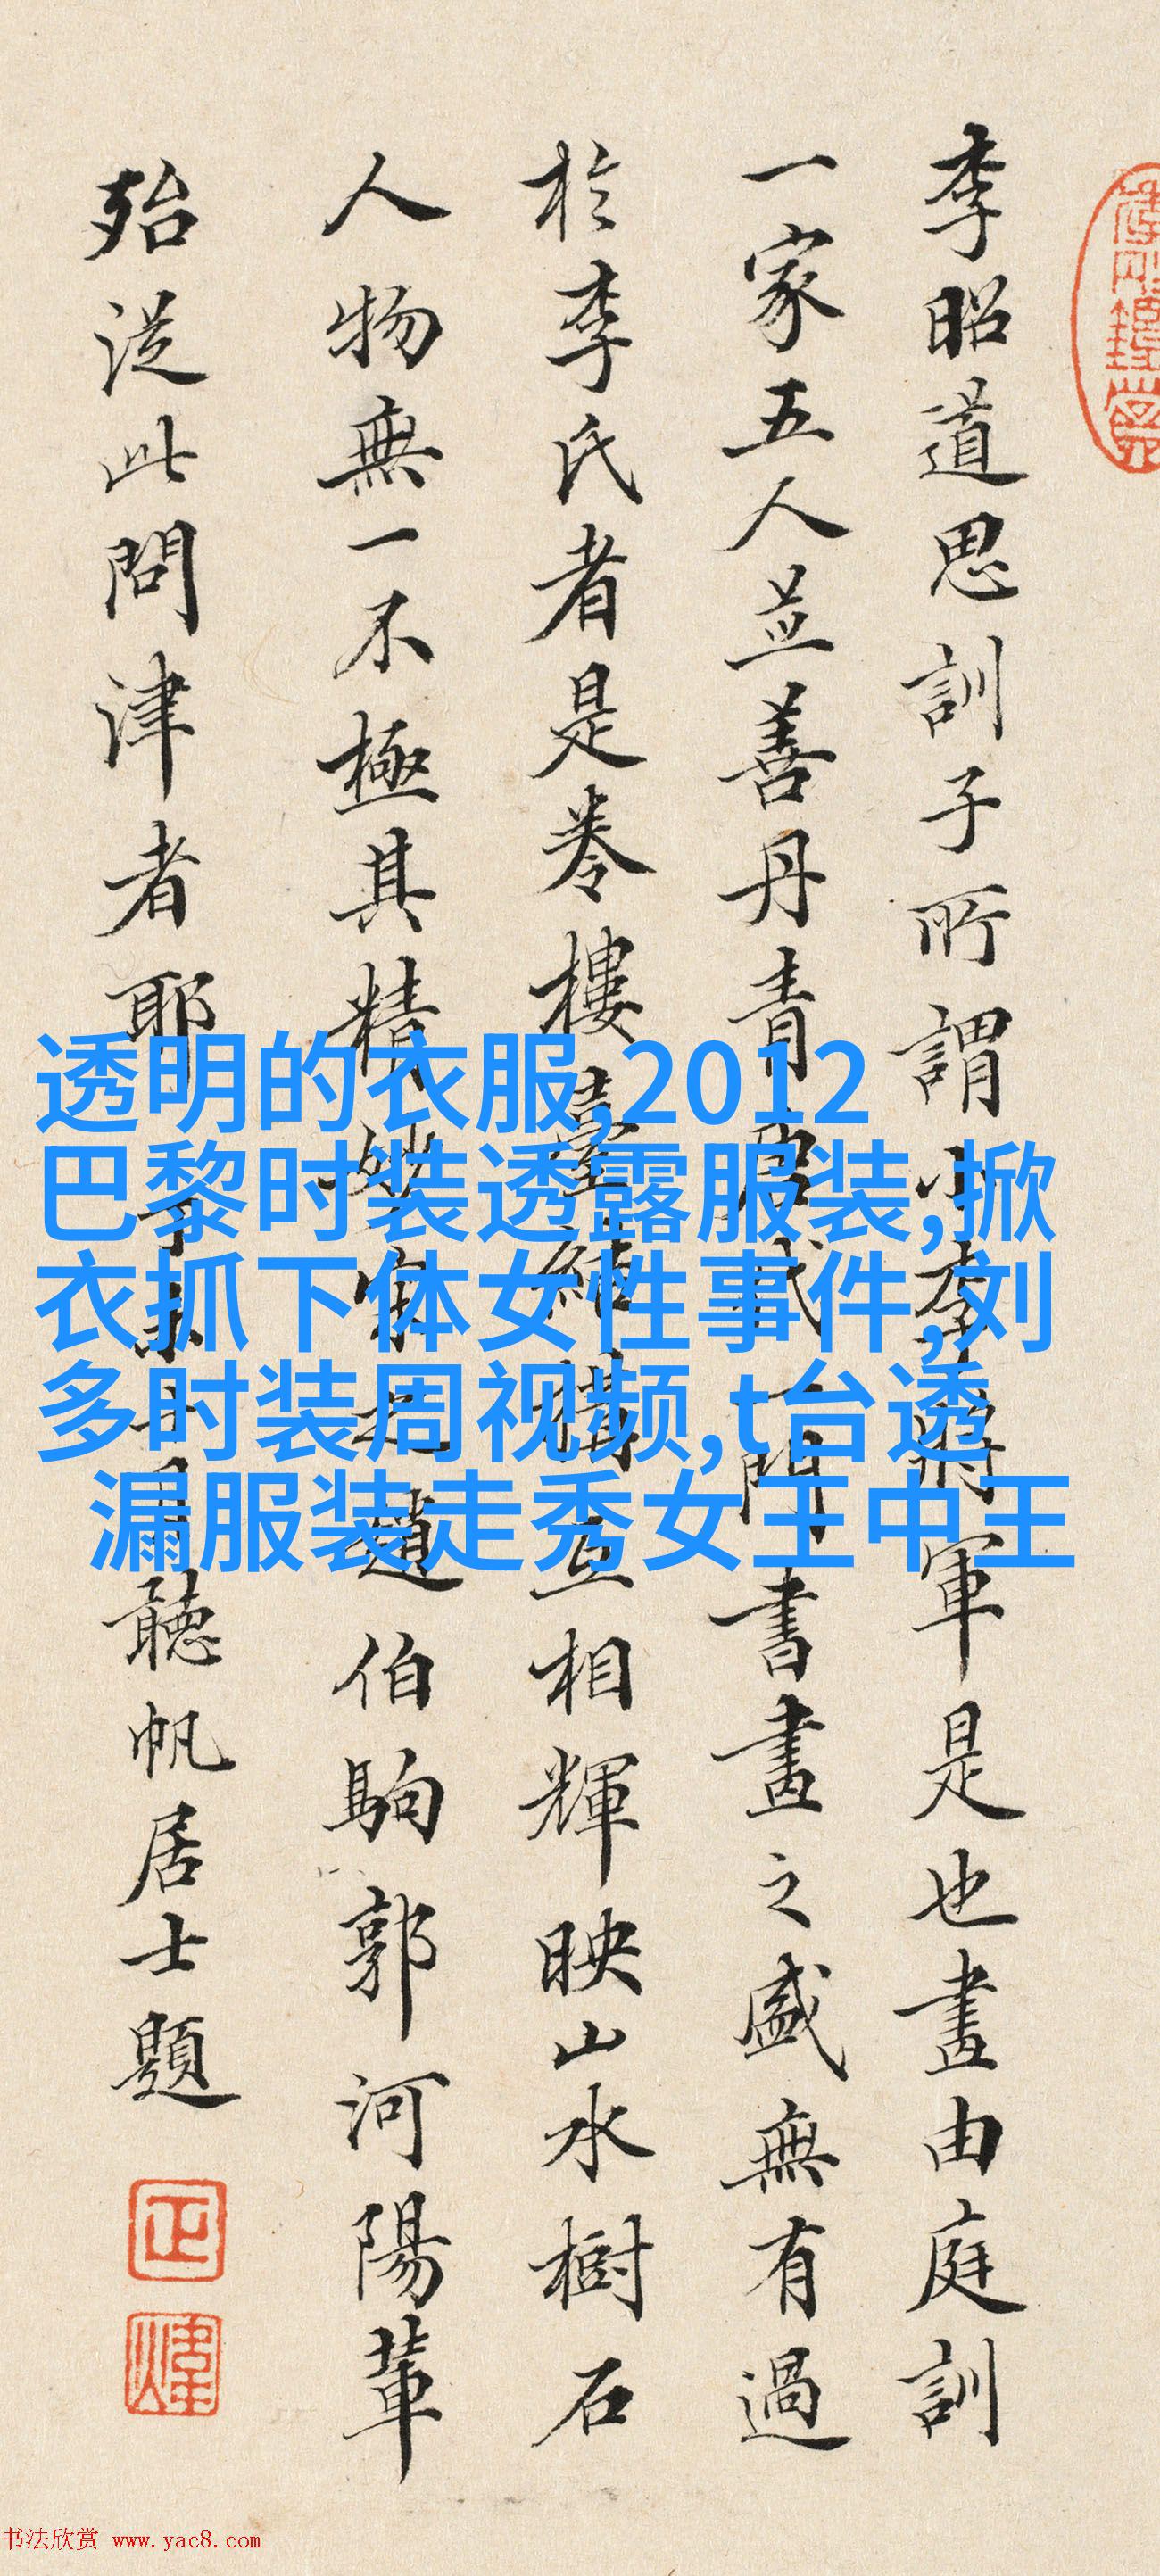 李昭道思訓子所謂小李將軍是也畫由庭訓
一家五人並善丹青唐代一門書畫之盛無有過
於李氏者是卷樓臺結構互相輝映山水樹石
人物無一不極其精妙宋之趙伯駒郭河陽輩
殆從此問津者耶
聽帆居士題
透明的衣服,2012
巴黎时装透露服装,掀
衣抓下体女性事件,刘
多时装周视频,t台透
漏服装走秀女王中王
书法欣赏 www.yac8.com